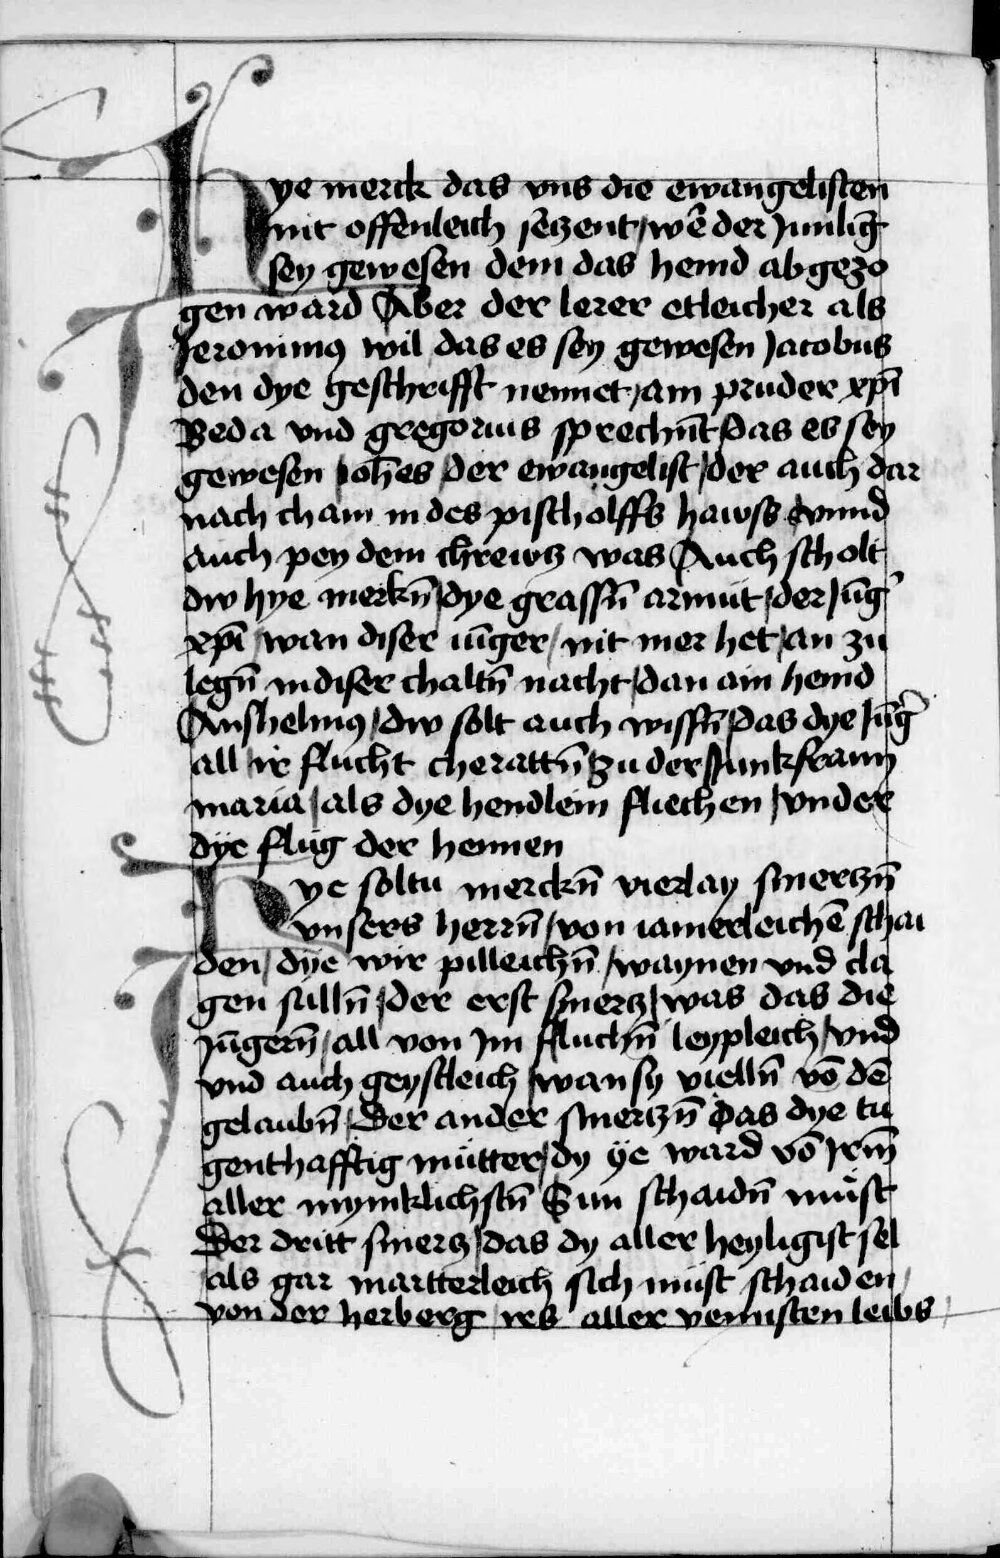 Hye merck das vns die ewangelisten
nit offenleich seczent / wē der Junlīg
sey gewesen dem das hemd abgezo
gen ward Aber der lerer etleicher als
Jeronimꝰ wil das es sey gewesen Jacobus
den dye geschrifft nennet / am pruder xp̄i
Beda vnd gregorius sprechn̄t / das es sey
gewesen / Joh̄es / der ewangelist / der auch dar
nach cham in des pischolffs hawss vnnd
auch pey dem chrewtz was Auch scholt
dw hye merkn̄ / dye grassn̄ armüt / der Jūgʼ
xp̄i / wan diser iūger / nit mer het / an zu
legn̄ in diser chaltn̄ nacht / dan ain hemd
Anshelmꝰ / dw solt auch wissn̄ / das dye Jūgʼ
all ir flücht cherattn̄ / zu der Junkfrawn
maria / als dye hendlein fliechen / vnder
dye flüg der hennen
Hye soltu merckn̄ vierlay smerczn̄
vnsers herrn̄ / von iamerleichē schai
den / dye wir pilleichn̄ / waynen vnd cla
gen sülln̄ / der erst smercz / was das die
Jūgern̄ / all von Im fluchn̄ leypleich / vnd
vnd auch geystleich / wan sy vielln̄ vō dē
gelaubn̄ / Der ander smerczn̄ Das dye tu
genthafftig mütter / dy ye ward vō Irm̄
aller mynnklichstn̄ Sun schaidn̄ müst
Der dritt smercz / das dy aller heyligist sel
als gar martterleich sich müst schaiden /
von der herberg / irs aller vennisten leibs /